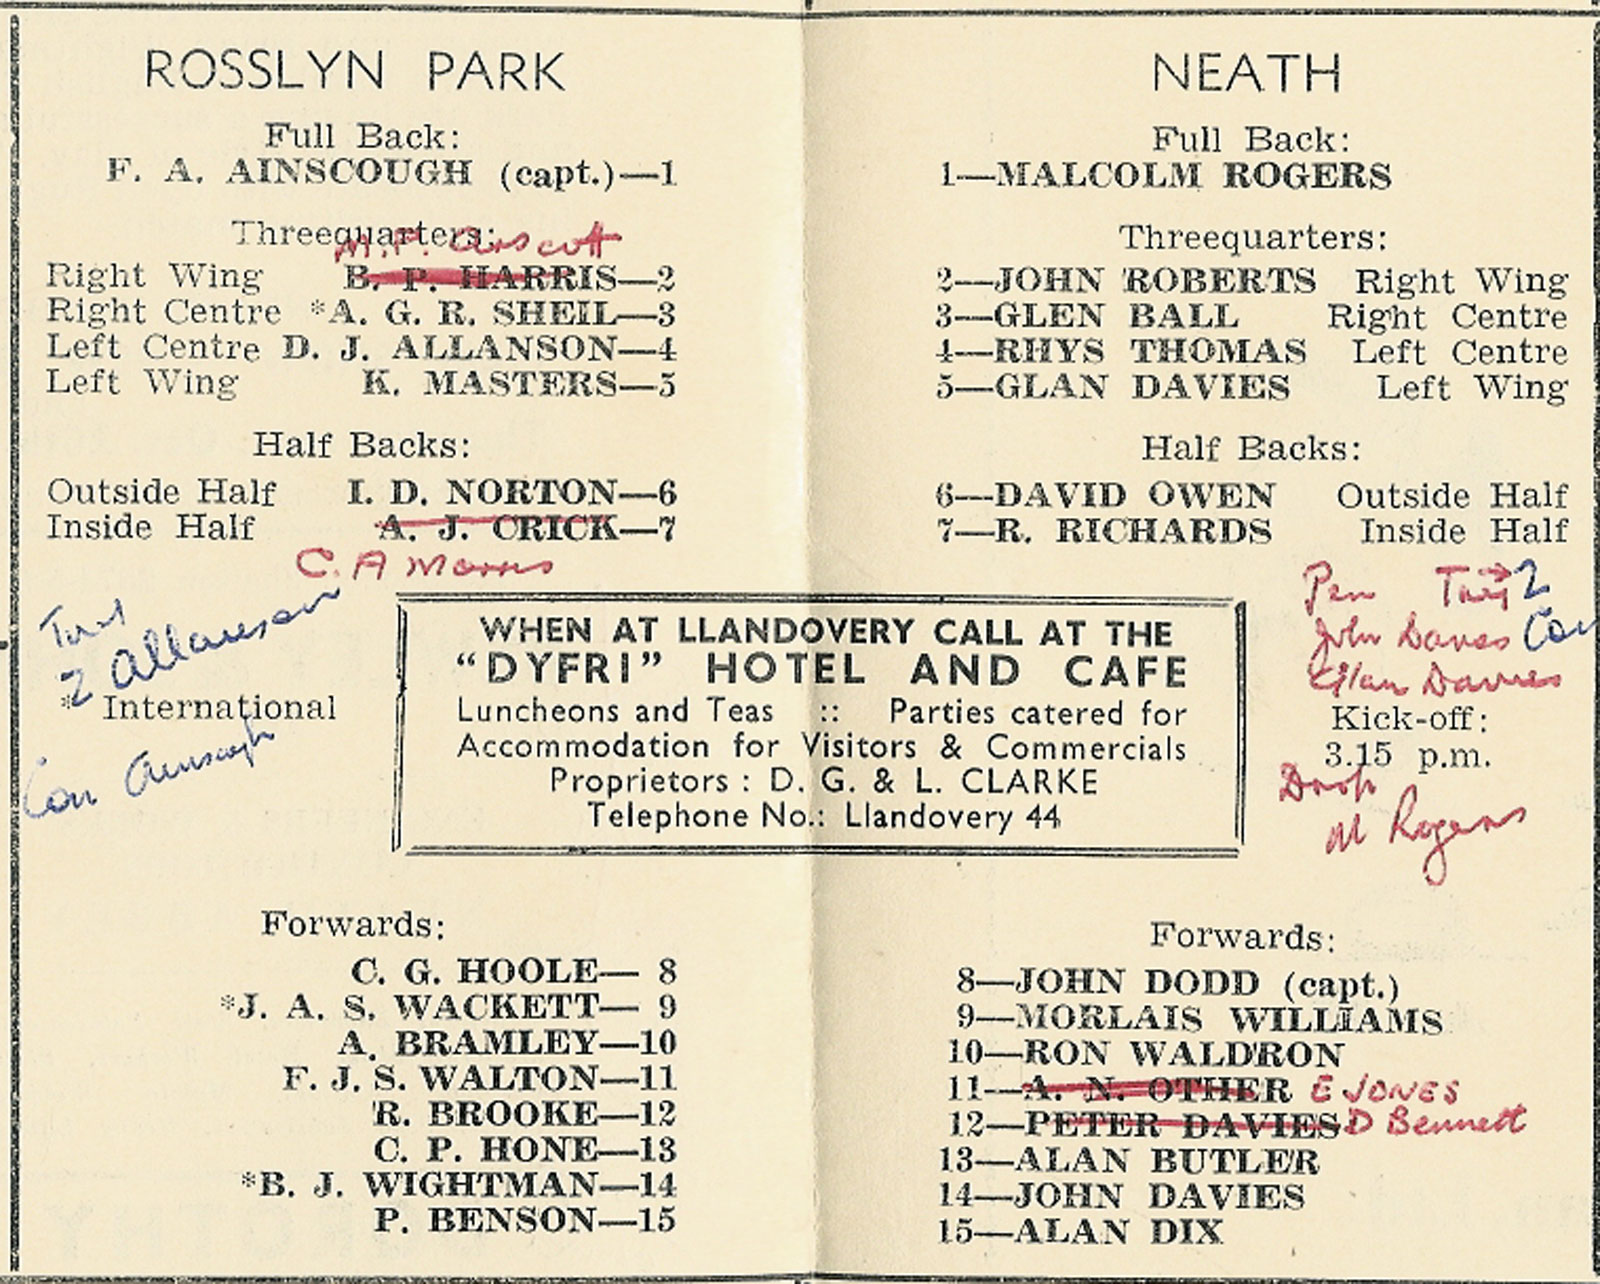 ROSSLYN PARK
Full Back:
F. A. AINSCOUGH (capt.)—1
Threequarters:
M.P.
Right Wing B. P. HARRIS—2
Right Centre *A. G. R. SHEIL—3
Left Centre D. J. ALLANSON—4
Left Wing K. MASTERS—5
Half Backs:
Outside Half I. D. NORTON—6
Inside Half A. J. CRICK—7
C. A Morris
2 Allanson
* International
Con Ainscough
Forwards:
C. G. HOOLE— 8
*J. A. S. WACKETT— 9
A. BRAMLEY—10
F. J. S. WALTON—11
R. BROOKE—12
C. P. HONE—13
*B. J. WIGHTMAN—14
P. BENSON—15
WHEN AT LLANDOVERY CALL AT THE
"DYFRI" HOTEL AND CAFE
Luncheons and Teas :: Parties catered for
Accommodation for Visitors & Commercials
Proprietors : D. G. & L. CLARKE
Telephone No.: Llandovery 44
NEATH
Full Back:
1—MALCOLM ROGERS
Threequarters:
2—JOHN ROBERTS Right Wing
3—GLEN BALL Right Centre
4—RHYS THOMAS Left Centre
5—GLAN DAVIES Left Wing
Half Backs:
6—DAVID OWEN Outside Half
7—R. RICHARDS Inside Half
Pen Try 2
John Davies Con
Glan Davies
Kick-off:
3.15 p.m.
Drop
M Rogers
Forwards:
8—JOHN DODD (capt.)
9—MORLAIS WILLIAMS
10—RON WALDRON
11—A. N. OTHER E JONES
12—PETER DAVIES D Bennett
13—ALAN BUTLER
14—JOHN DAVIES
15—ALAN DIX